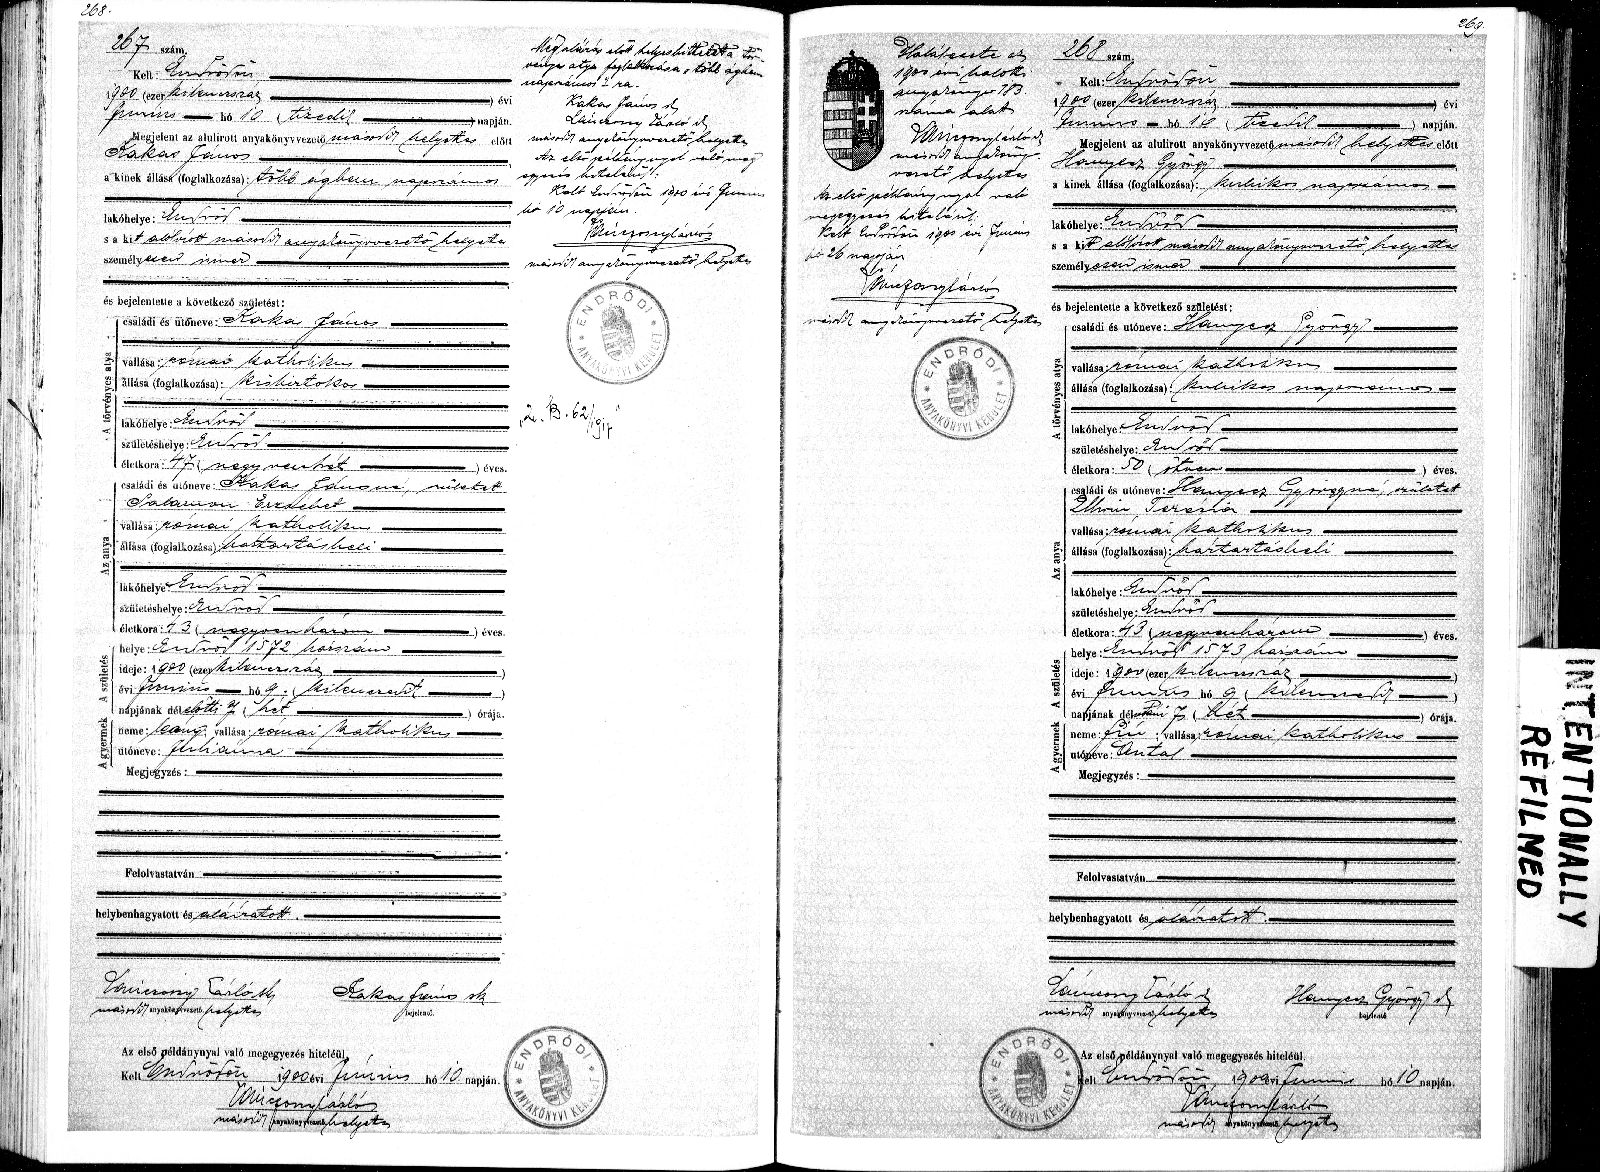 268.
267 szám.
Kelt: Endrődön
1900 (ezer kilencszáz ) évi
Junius hó 10 ( tizedik ) napján.
Megjelent az alulirott anyakönyvvezető másodk helyettes előtt
Kakas János
a kinek állása (foglalkozása): több égben napszámos
lakóhelye: Endrőd
s a kit alólirott másodk anyakönyvvezető helyette
személyesen ismer
és bejelentette a következő születést:
A törvényes atya
családi és utóneve: Kakas János
vallása: római katholikus
állása (foglalkozása): kisbirtokos
lakóhelye: Endrőd
születéshelye: Endrőd
életkora: 47 ( negyvenhét ) éves.
Az anya
családi és utóneve: Kakas Jánosné, született
Salamon Erzsébet
vallása: római katholikus
állása (foglalkozása): háztartásbeli
lakóhelye: Endrőd
születéshelye: Endrőd
életkora: 43 ( negyvenhárom ) éves.
A születés
helye: Endrőd 1572 házszám
ideje: 1900 (ezer kilencszáz )
évi Junius hó 9. ( kilencedik )
napjának délelőtti 7 ( hét ) órája.
A gyermek
neme: leány vallása: római katholikus
utóneve: Julianna
Megjegyzés:
Felolvastatván
helybenhagyatott és aláiratott.
Lánczony László sk
Kakas János sk
másodk anyakönyvvezető helyettes
bejelentő.
Az első példánynyal való megegyezés hiteléül.
Kelt Endrődön 1900 évi Junius hó 10 napján.
Lánczony László
másodk anyakönyvvezető helyettes
Még aláirás előtt helyesbittetett a tör-
vényes atya foglalkozása, több égben
napszámos"-ra.
Kakas János sk
Lánczony László sk
másodk anyakönyvvezető helyettes
Az első példánynyal való meg-
egyezés hiteléül.
Kelt Endrődön 1900 évi Junius
hó 10 napján.
Lánczony László
másodk anyakönyvvezető helyettes
ENDRŐDI
ANYAKÖNYVI KERÜLET
B. 62/1917
ENDRŐDI
ANYAKÖNYVI KERÜLET
269.
az
1900 évi halotti
183.
száma alatt
Lánczony László sk
másodk anyakönyv-
vezető helyettes
Az első példánynyal való
megegyezés hiteléül.
Kelt Endrődön 1900 évi Junius
hó 26 napján
Lánczony László
másodk anyakönyvvezető helyettes
ENDRŐDI
ANYAKÖNYVI KERÜLET
268 szám.
Kelt: Endrődön
1900 (ezer kilencszáz ) évi
Junius hó 10 ( tizedik ) napján.
Megjelent az alulirott anyakönyvvezető másodk helyettes előtt
Hanyecz György
a kinek állása (foglalkozása): kubikos napszámos
lakóhelye: Endrőd
s a kit alólirott másodk anyakönyvvezető helyettes
személyesen ismer
és bejelentette a következő születést:
A törvényes atya
családi és utóneve: Hanyecz György
vallása: római katholikus
állása (foglalkozása): kubikos napszámos
lakóhelye: Endrőd
születéshelye: Endrőd
életkora: 50 ( ötven ) éves.
Az anya
családi és utóneve: Hanyecz Györgyné, született
Terézia
vallása: római katholikus
állása (foglalkozása): háztartásbeli
lakóhelye: Endrőd
születéshelye: Endrőd
életkora: 43 ( negyvenhárom ) éves.
A születés
helye: Endrőd 1573 házszám
ideje: 1900 (ezer kilencszáz )
évi Junius hó 9 ( kilencedik )
napjának délutáni 7 ( hét ) órája.
A gyermek
neme: fiú vallása: római katholikus
utóneve: Antal
Megjegyzés:
Felolvastatván
helybenhagyatott és aláiratott.
Lánczony László sk
Hanyecz György sk
másodk anyakönyvvezető helyettes
bejelentő
Az első példánynyal való megegyezés hiteléül.
Kelt Endrődön 1900 évi Junius hó 10 napján.
Lánczony László
másodk anyakönyvvezető helyettes
ENDRŐDI
ANYAKÖNYVI KERÜLET
INTENTIONALLY
REFILMED